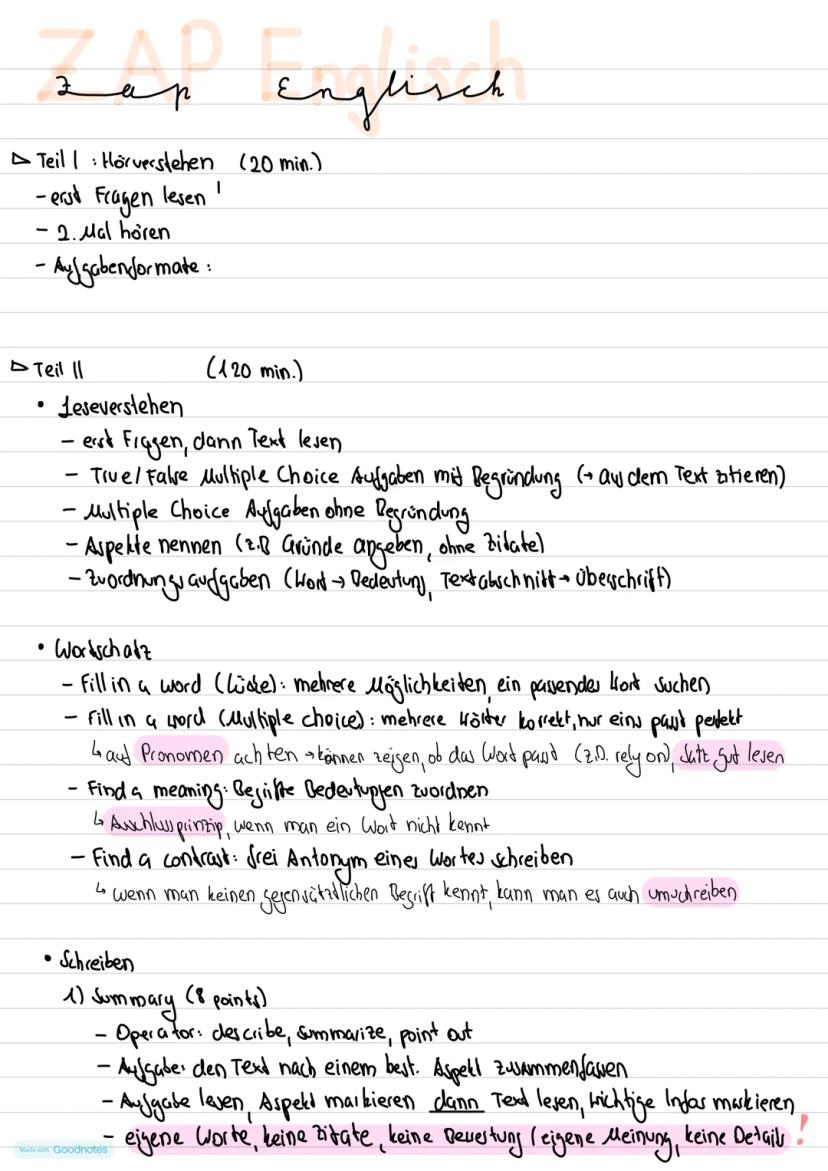 ZAP Englisch
Zap Englisch
▷ Teil I : Hörverstehen (20 min.)
- erst Fragen lesen !
- 2. Mal hören
- Aufgabenformate :
▷ Teil II (120 min.)
• Leseverstehen
- erst Fragen, dann Text lesen
- True/False Multiple Choice Aufgaben mit Begründung (→ aus dem Text zitieren)
- Multiple Choice Aufgaben ohne Begründung
- Aspekte nennen (z.B Gründe angeben, ohne Zitate)
- Zuordnungsaufgaben (Wort → Bedeutung, Textabschnitt → Überschrift)
• Wortschatz
- Fill in a word (Lücke): mehrere Möglichkeiten, ein passendes Wort suchen
- Fill in a word (Multiple choice): mehrere Wörter korrekt, nur eins passt perfekt
↳ auf Pronomen achten → können zeigen, ob das Wort passt (z.B. rely on), Satz gut lesen
- Find a meaning: Begriffe Bedeutungen zuordnen
↳ Auschlussprinzip, wenn man ein Wort nicht kennt
- Find a contrast: frei Antonym eines Wortes schreiben
↳ wenn man keinen gegensätzlichen Begriff kennt, kann man es auch umschreiben
• Schreiben
1) Summary (8 points)
- Operator: describe, summarize, point out
- Aufgabe: den Text nach einem best. Aspekt zusammenfassen
- Aufgabe lesen, Aspekt markieren dann Text lesen, wichtige Infos markieren
- eigene Worte, keine Zitate, keine Bewertung / eigene Meinung, keine Details !
Made with Goodnotes